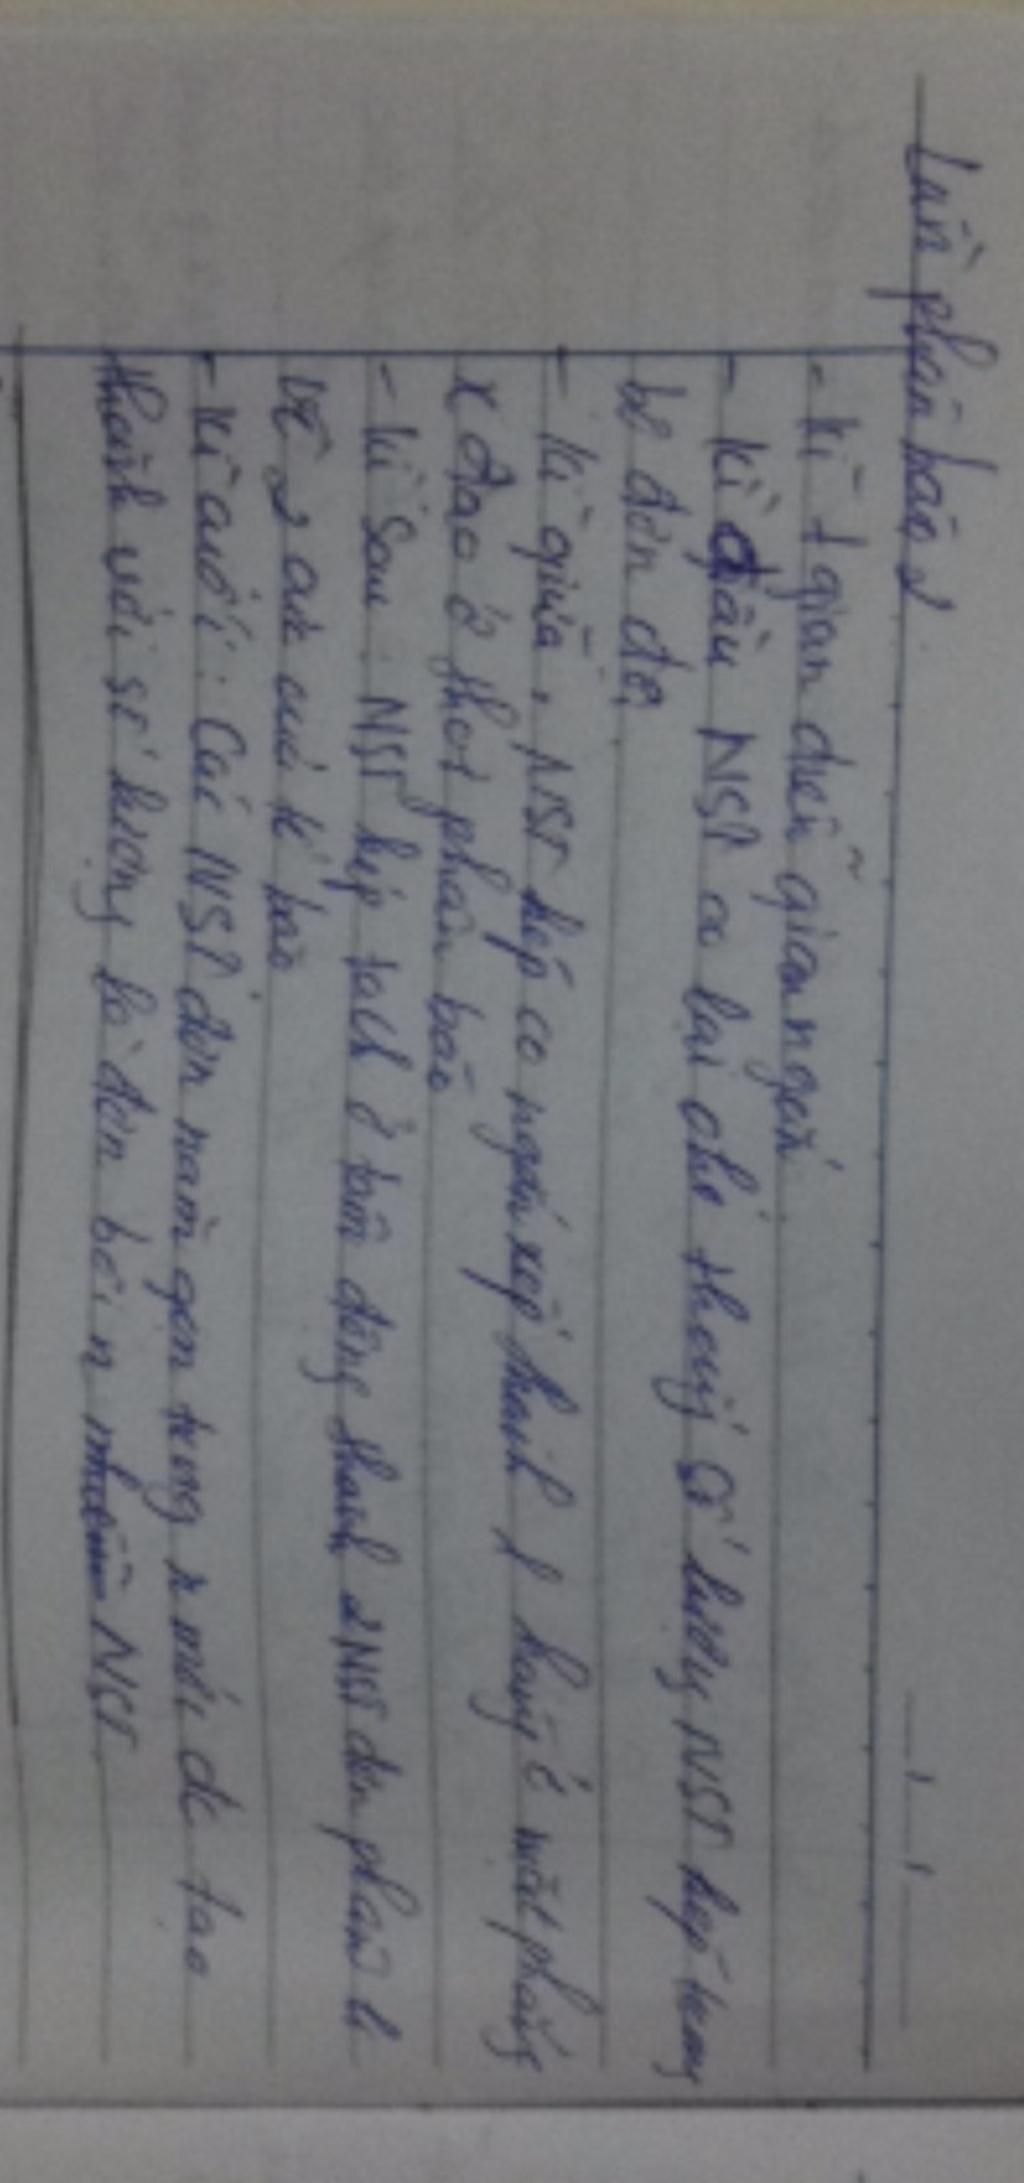 Lần phân bào 2
- Kì t gian diễn gian ngắn
- Kì đầu NST co lại cho thấy số lượng NST kép trong
bộ đơn đội
- Kì giữa, NST kép co ngắn xếp thành 1 hàng ở mặt phẳng
x đạo ở thoi phân bào
- Kì Sau: NST kép tách ở tâm động thành 2 NST đơn phân li
về 2 cực của tế bào
- Kì cuối: Các NST đơn nằm gọn trong n mới đc tạo
thành với số lượng là đơn bội n NST